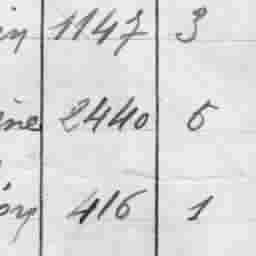 in 1147 3
ine 2440 5
ón 416 1